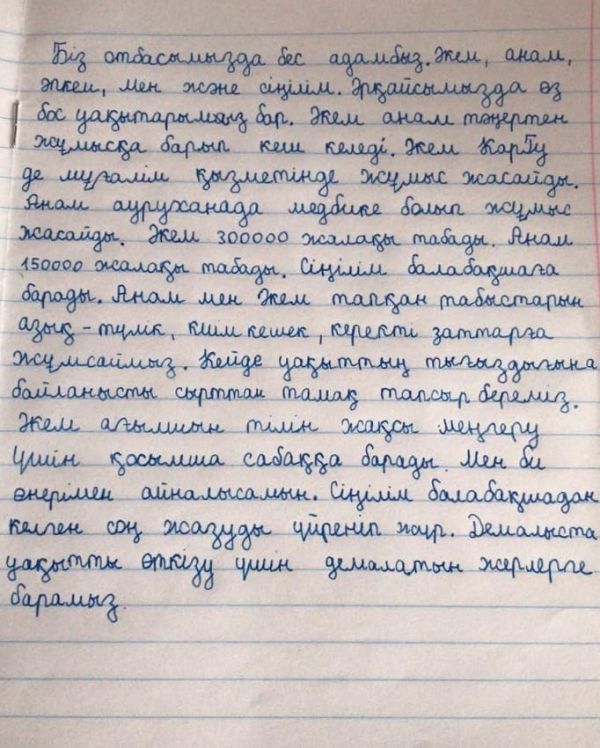 Біз отбасымызда бес адамбыз. Әкем, анам,
әпкем, мен және сіңілім. Әрқайсымызда өз
бос уақытарымыз бар. Әкем анам таңертен
жұмысқа барып кеш келеді. Әкем КарГу
де мұғалім қызметінде жұмыс жасайды.
Анам ауруханада медбике болып жұмыс
жасайды. Әкем 300000 жалақы табады. Анам
150000 жалақы табады. Сіңілім балабақшаға
барады. Анам мен Әкем тапқан табыстарын
азық-түлік, киім кешек, керекті заттарға
жұмсаймыз. Кейде уақыттың тығыздығына
байланысты сырттан тамақ тапсыр береміз.
Әкем ағылшын тілін жақсы меңгеру
үшін қосымша сабаққа барады. Мен би
өнерімен айналысамын. Сіңілім балабақшадан
келген соң жазуды үйреніп жүр. Демалыста
уақытты өткізу үшін демалатын жерлерге
барамыз.